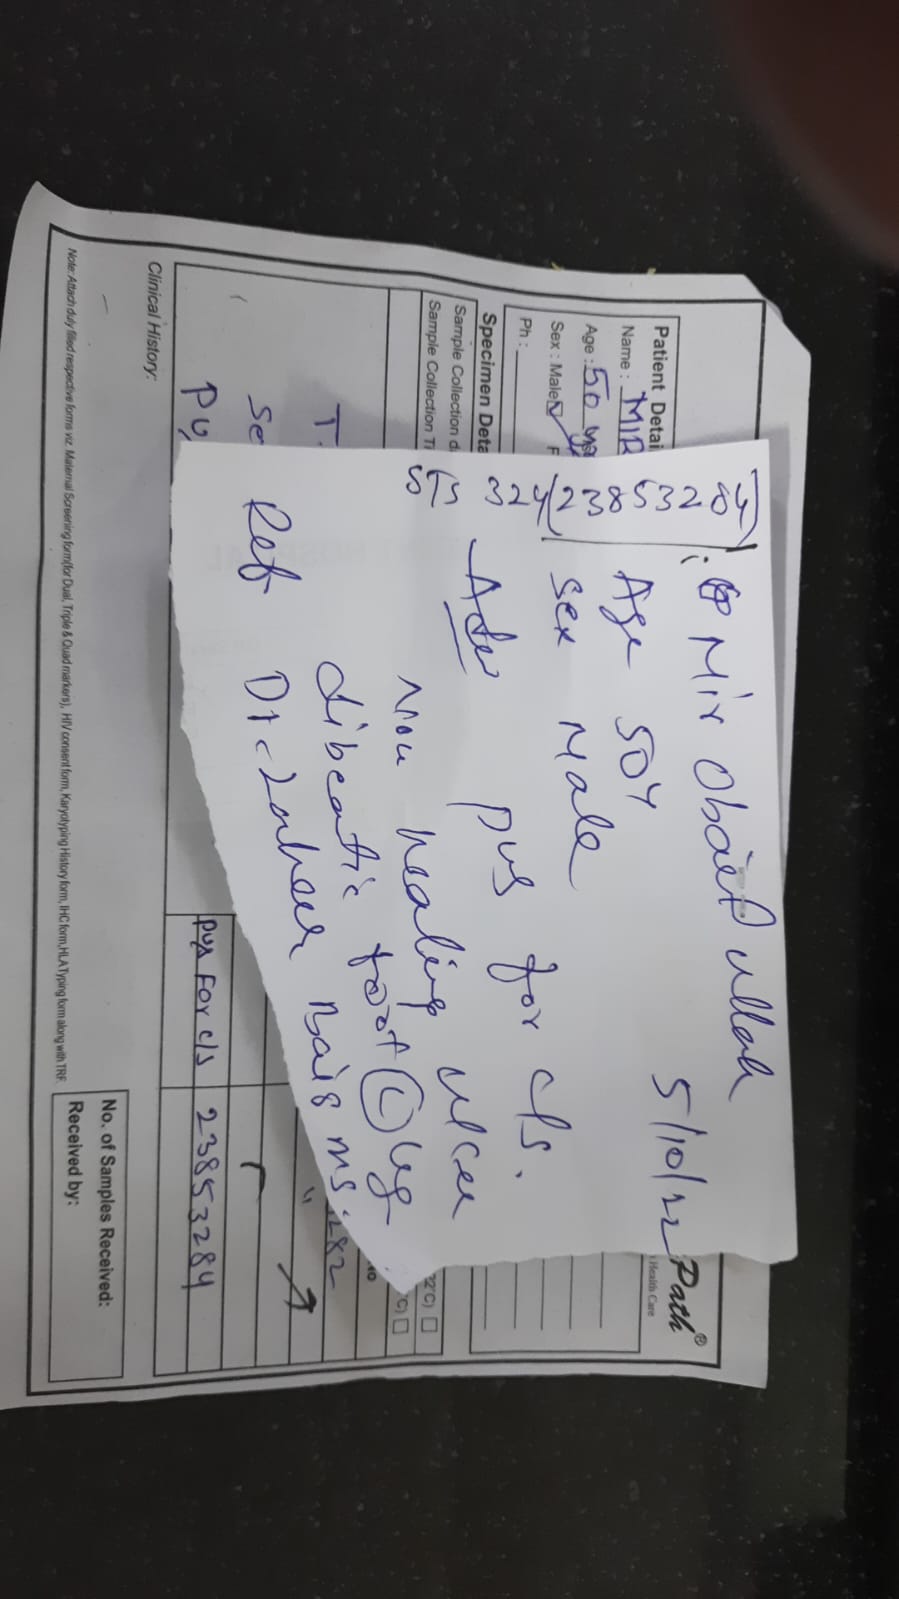 Path®
Health Care
Patient Detai
Name : MIR
Age : 50 yrs
Sex : Male ☑ F
Ph :
Specimen Deta
Sample Collection d
Sample Collection Ti
22°C) ☐
°C) ☐
No
T.
Se
Pu
282
"
pus For c/s 23853284
Clinical History:
No. of Samples Received:
Received by:
Note: Attach duly filled respective forms viz. Maternal Screening form(for Dual, Triple & Quad markers), HIV consent form, Karyotyping History form, IHC form, HLA Typing form along with TRF.
Mir Obaied ullah
5/10/22
238532 84
Age 50Y
324
Sex Male
STS
Adv pus for c/s.
Non healing ulcer
dibeatic foot (L) leg
Ref Dr. Zaheer Baig ms.